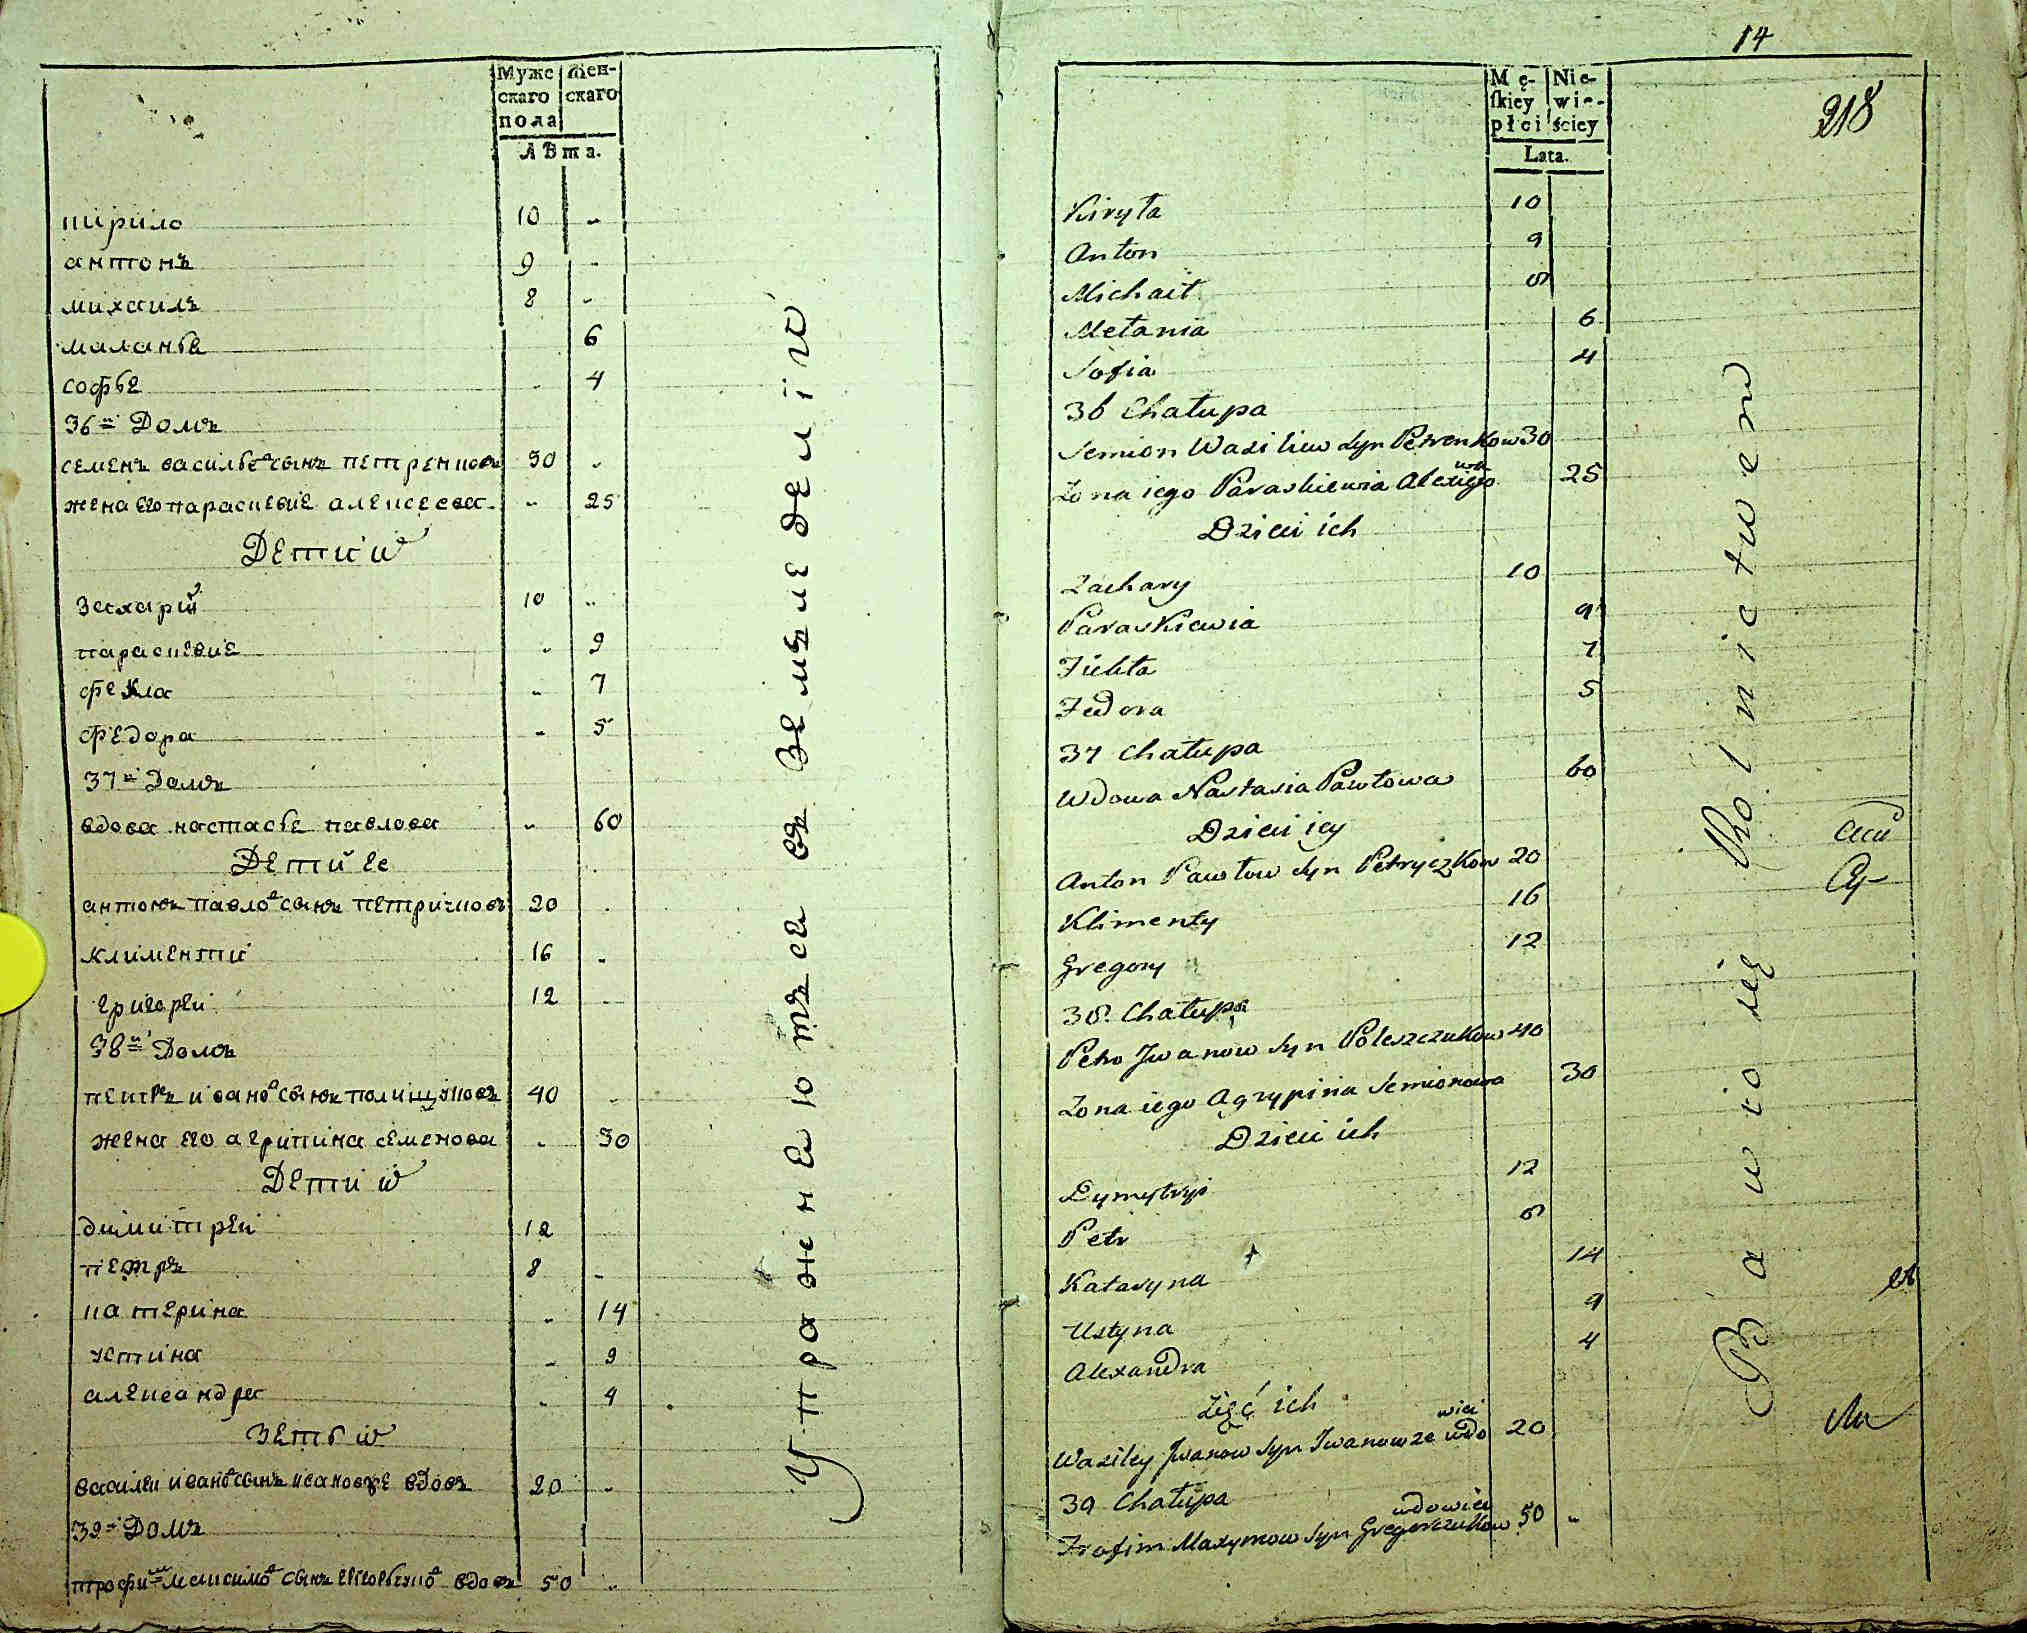 Муже Жен-
скаго скаго
пола
лѣта.
кирило 10 "
антонъ 9 "
михаилъ 8 "
маланья 6
софья " 4
36й Домъ
семенъ васильевъ сынъ петренковъ 30 "
жена его параскевие алексеева " 25
Дети и
захарий 10 "
параскевие " 9
фекла " 7
федора " 5
37й Домъ
вдова настасья павлова " 60
Дети ее
антонъ павловъ сынъ петричковъ 20
климентий 16 "
григорей 12
38й Домъ
петръ ивановъ сынъ полищуковъ 40
жена его агрипина семенова " 30
Дети и
димитрей 12
петръ 8 "
катерина " 14
устина " 9
александра " 4
Зеть и
василеи ивановъ сынъ вдовъ 20 "
39й Домъ
трофимъ максимовъ сынъ вдовъ 50 "
Упражнеютъса въ земледелiи
14
218
Mę- Nie-
ſkiey wie-
płci ściey
Lata.
Kiryła 10
Anton 9
Michaił 8
Mełania 6
Sofia 4
36 Chałupa
Semion Wasiliew syn Petrenkow 30
Zona iego Paraskiewia Alexiejewa 25
Dzieci ich
Zachary 10
Paraskiewia 9
Fiekła 7
Fedora 5
37 Chałupa
Wdowa Nastasia Pawłowa 60
Dzieci iey
Anton Pawłow syn Petryczkow 20
Klimenty 16
Gregory 12
38. Chałupa
Petro Jwanow syn Poleszczukow 40
Zona iego Agrypina Semionowa 30
Dzieci ich
Dymytryi 12
Petr 8
Kataryna 14
Ustyna 9
Alexandra 4
Zięć ich
Wasiley Jwanow syn Iwanow ze wdowiec 20
39 Chałupa
Trofim Maxymow syn Gregorczukow wdowiec 50 "
Bawio się Rolnictwem